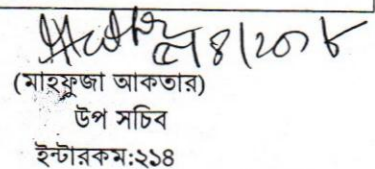 (মাহফুজা আকতার)
উপ সচিব
ইন্টারকম:২১৪